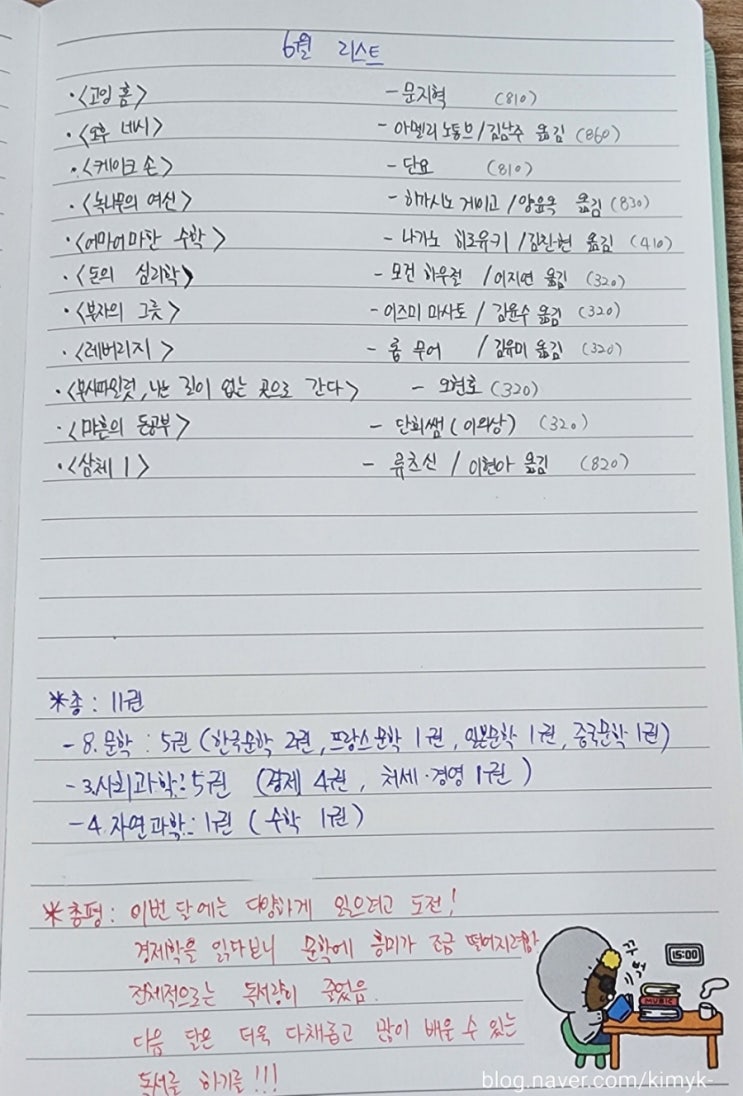 6월 리스트
·<고잉 홈> - 문지혁 (810)
·<오후 네시> - 아멜리 노통브/김남주 옮김 (860)
·<케이크 손> - 단요 (810)
·<녹나무의 여신> - 히가시노 게이고/양윤옥 옮김 (830)
·<어마어마한 수학> - 나가노 히로유키/김진현 옮김 (410)
·<돈의 심리학> - 모건 하우절 /이지연 옮김 (320)
·<부자의 그릇> - 이즈미 마사토/ 김윤수 옮김 (320)
·<레버리지> - 롭 무어 /김유미 옮김 (320)
·<부시파일럿, 나는 길이 없는 곳으로 간다> - 오현호 (320)
·<마흔의 돈공부> - 단희쌤(이의상) (320)
·<삼체 1> - 류츠신 / 이현아 옮김 (820)
*총 : 11권
- 8. 문학 : 5권 (한국문학 2권, 프랑스문학 1권, 일본문학 1권, 중국문학 1권)
- 3.사회과학: 5권 (경제 4권, 처세·경영 1권)
- 4. 자연과학: 1권 (수학 1권)
*총평: 이번 달에는 다양하게 읽으려고 도전!
경제학을 읽다보니 문학에 흥미가 조금 떨어지려함
전체적으로는 독서량이 줄었음.
다음 달은 더욱 다채롭고 많이 배울 수 있는
독서를 하기를!!!
15:00
MUSIC
blog.naver.com/kimyk-